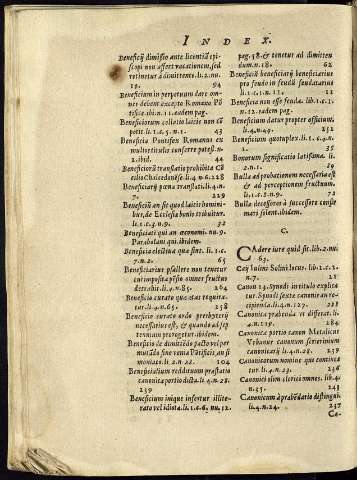 INDEX.
Beneficij dimissio ante licentiã epi-
scopi non affert vacationem, sed
retinetur à dimittente. li.2.nu.
19. 94
Beneficium in perpetuum dare om-
nes debent excepto Romano Põ
tifice ibi.n.1 eadem pag.
Beneficiorum collatio laicis non cõ
petit li.1.c.5.n.1. 43
Beneficia Pontifex Romanus ex
multis titulis conferre potest.n.
2.ibid. 44
Beneficiorũ translatio prohibita Cõ
cilio Chalcedonẽsi.li.4.n.6.228
Beneficiarij pœna translati.li.4.n.
7. 229
Beneficiũ an sit quod laicis homini-
bus, de Ecclesiæ bonis tribuitur.
li.1.c.3.n.9. 32
Beneficiati qui an œconomi. nu.9.
Parabolani qui.ibidem.
Beneficia electiua quæ sint. li.1.c.
7.n.2. 65
Beneficiarius psallere non tenetur
cui imposita põsio omnes fructus
detrahit.li.4.n.85. 264
Beneficio curato quæ ætas requira-
tur.li.4.n.65. 258
Beneficio curato ordo presbyterij
necessarius est, & quando ad sep
tennium prorogetur.ibidem.
Beneficio de dimittẽdo pacto vel per
mutãdo sine venia Põtificis an si-
moniacus.li.2.n.22. 104
Beneficialium reddituum præstatio
canonica portio dicta.li.4.n.28.
239
Beneficium inique infertur illite-
rato vel idiotæ.li.1.c.6. nu.12.
pag.58.& tenetur ad dimitten
dum.n.18. 62
Beneficij beneficiarij beneficiarius
pro feudo in feudũ feudatarius
li.1.c.1.n.11. 12
Beneficia non esse feuda. lib.1.c.1.
n.12.eadem pag.
Beneficium datur propter officium.
li.4.n.49. 251
Beneficium quotuplex.li.1.c.4.n.
35
Bonorum significatio latissima. li.
2.n.1. 59
Bullæ ad probationem necessariæ est
& ad perceptionem fructuum.
li.1.c.5.n.9. 72
Bulla decessoris à successore confir
mari solent.ibidem.
C.
Cadere iure quid sit.lib.2.nu.
63.
Caij Iulini Solini locus. lib.2.c.2.
n.7. 21
Canon 23. Synodi in titulo explica
tur. Synodi sextæ canonica an re-
cipienda.li.4.n.127. 288
Canonica præbenda et differat. li.
4.n.119. 284
Canonica portio canon Metalicæ
Vrbanæ canonum seriertium
canonicarij li.4.n.28. 239
Canonicatum nomine que contine
tur li.4.n.23. 236
Canonici olim clerici omnes. lib.4.
n.35. 243
Canonicum à præbendatio distingui.
li.4.n.24. 237
Ca-